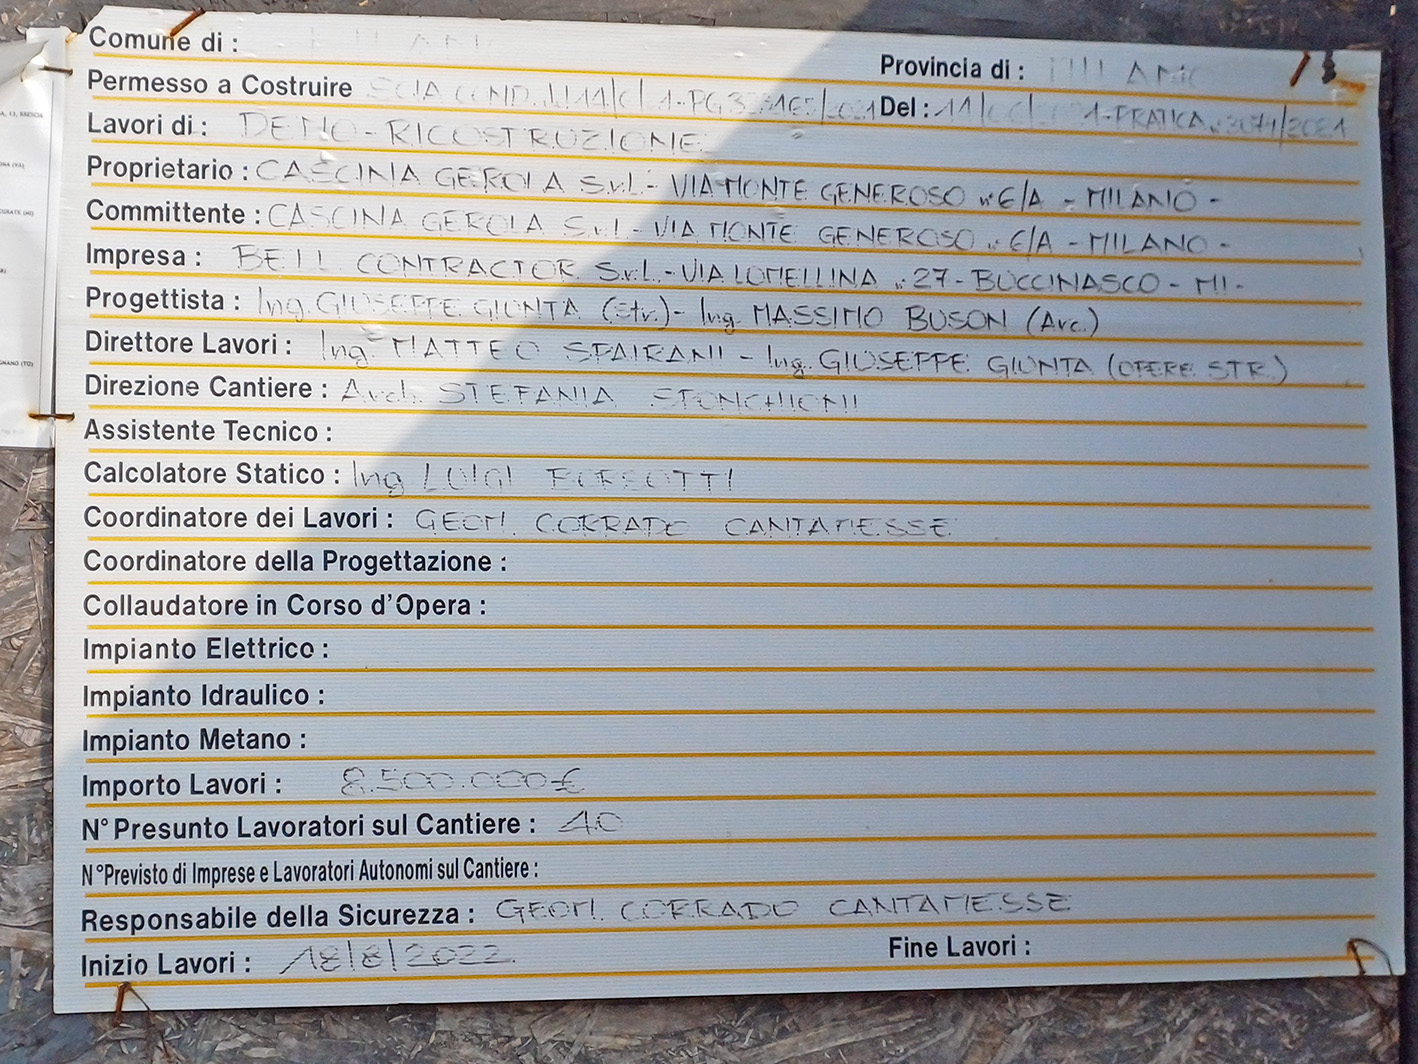 Comune di : MILANO
Provincia di : MILANO
Permesso a Costruire SCIA COND. Del :
Lavori di : DEMO-RICOSTRUZIONE
Proprietario : CASCINA GEROLA S.r.l. - VIA MONTE GENEROSO n° 6/A - MILANO -
Committente : CASCINA GEROLA S.r.l - VIA MONTE GENEROSO n° 6/A - MILANO -
Impresa : BELL CONTRACTOR S.r.l. - VIA LOMELLINA n° 27 - BUCCINASCO - MI -
Progettista : Ing. GIUSEPPE GIUNTA (Str.) - Ing. MASSIMO BUSON (Arc.)
Direttore Lavori : Ing. MATTEO SPAIRANI - Ing. GIUSEPPE GIUNTA (OPERE STR.)
Direzione Cantiere : Arch. STEFANIA
Assistente Tecnico :
Calcolatore Statico : Ing LUIGI
Coordinatore dei Lavori : GEOM. CORRADO CANTAMESSE
Coordinatore della Progettazione :
Collaudatore in Corso d'Opera :
Impianto Elettrico :
Impianto Idraulico :
Impianto Metano :
Importo Lavori : 8.500.000 €
N° Presunto Lavoratori sul Cantiere : 40
N° Previsto di Imprese e Lavoratori Autonomi sul Cantiere :
Responsabile della Sicurezza : GEOM. CORRADO CANTAMESSE
Inizio Lavori : 18/8/2022. Fine Lavori :